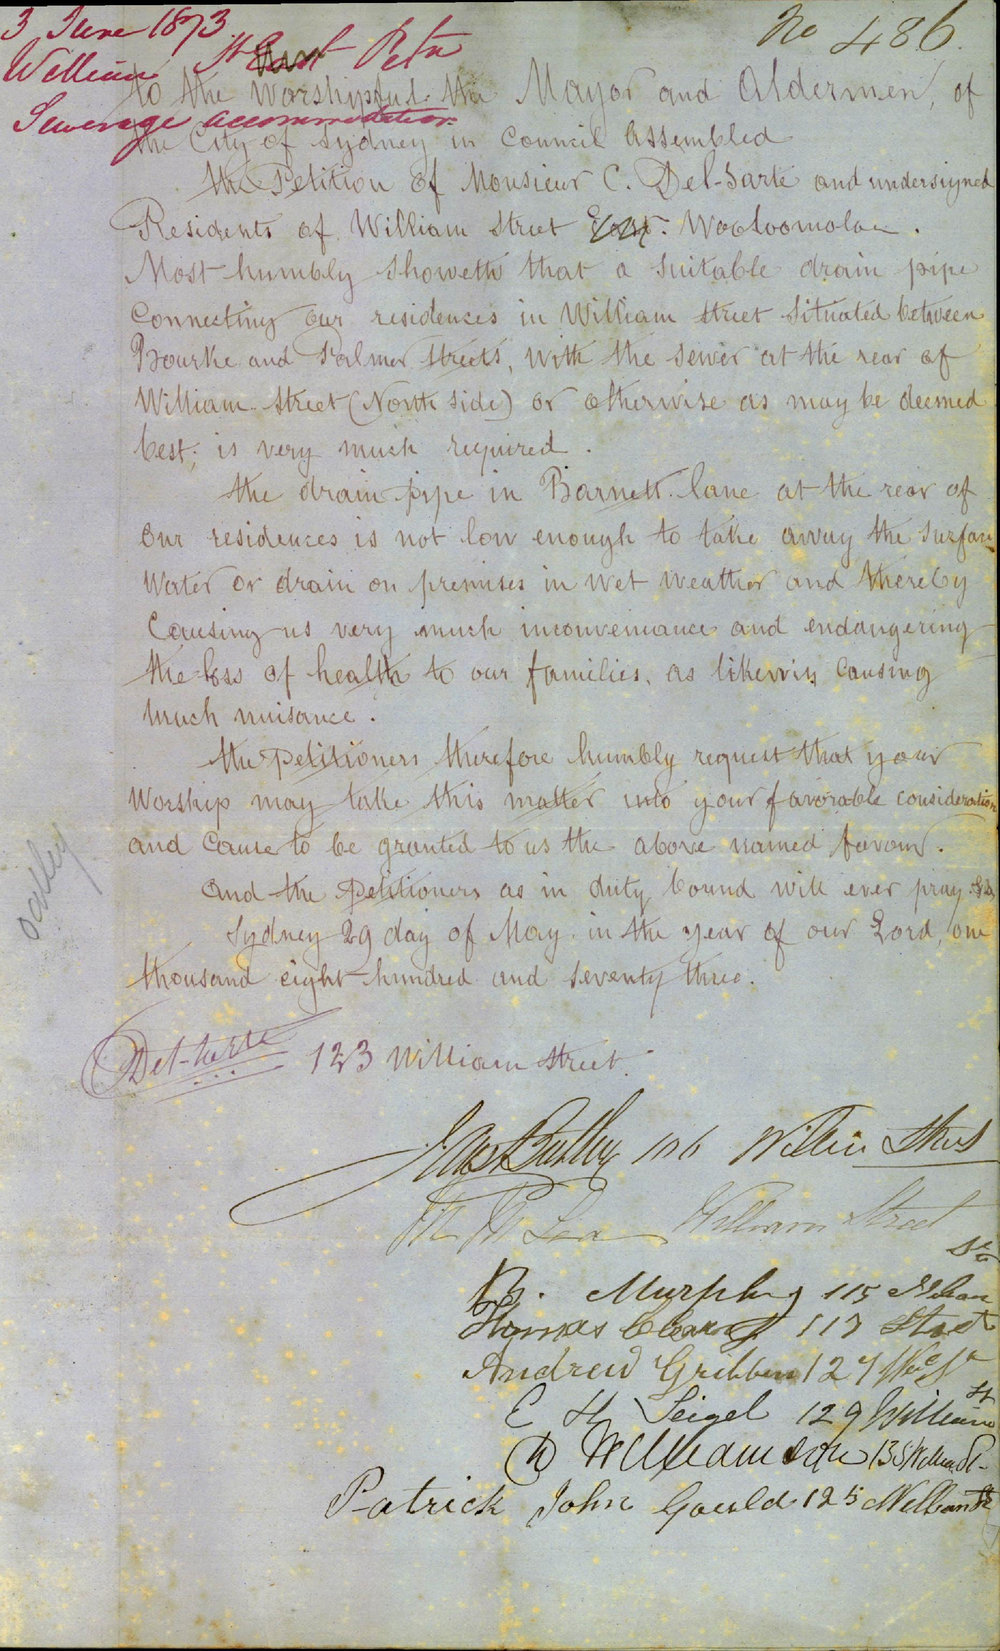 3 June 1873
No 486.
William St East Petn
Sewerage accommodation
To the Worshipful the Mayor and Aldermen, of
the City of Sydney in Council Assembled
The Petition of Monsieur C. Del-Sarte and undersigned
Residents of William Street East. Wooloomoloo.
Most humbly Showeth that a suitable drain pipe
Connecting our residences in William Street Situated between
Bourke and Palmer Streets, with the sewer at the rear of
William Street (North side) or otherwise as may be deemed
best; is very much required.
The drain pipe in Barnett lane at the rear of
our residences is not low enough to take away the surface
Water or drain on premises in wet weather and thereby
Causing us very much inconveniance and endangering
the loss of health to our families, as likewise Causing
much nuisance.
The Petitioners therefore humbly request that your
Worship may take this matter into your favorable consideration
and Cause to be granted to us the above named favour.
And the Petitioners as in duty bound will ever pray &c
Sydney 29 day of May in the year of our Lord, one
thousand eight hundred and seventy three.
Del-Sarte 123 William Street.
William Street
William Street
B. Murphy 115 William St
Thomas 117 Street
Andrew Gribben 127 Wm St
E H Seigel 129 William St
D Williamson 135 William St
Patrick John Gould 125 William St
Oatley